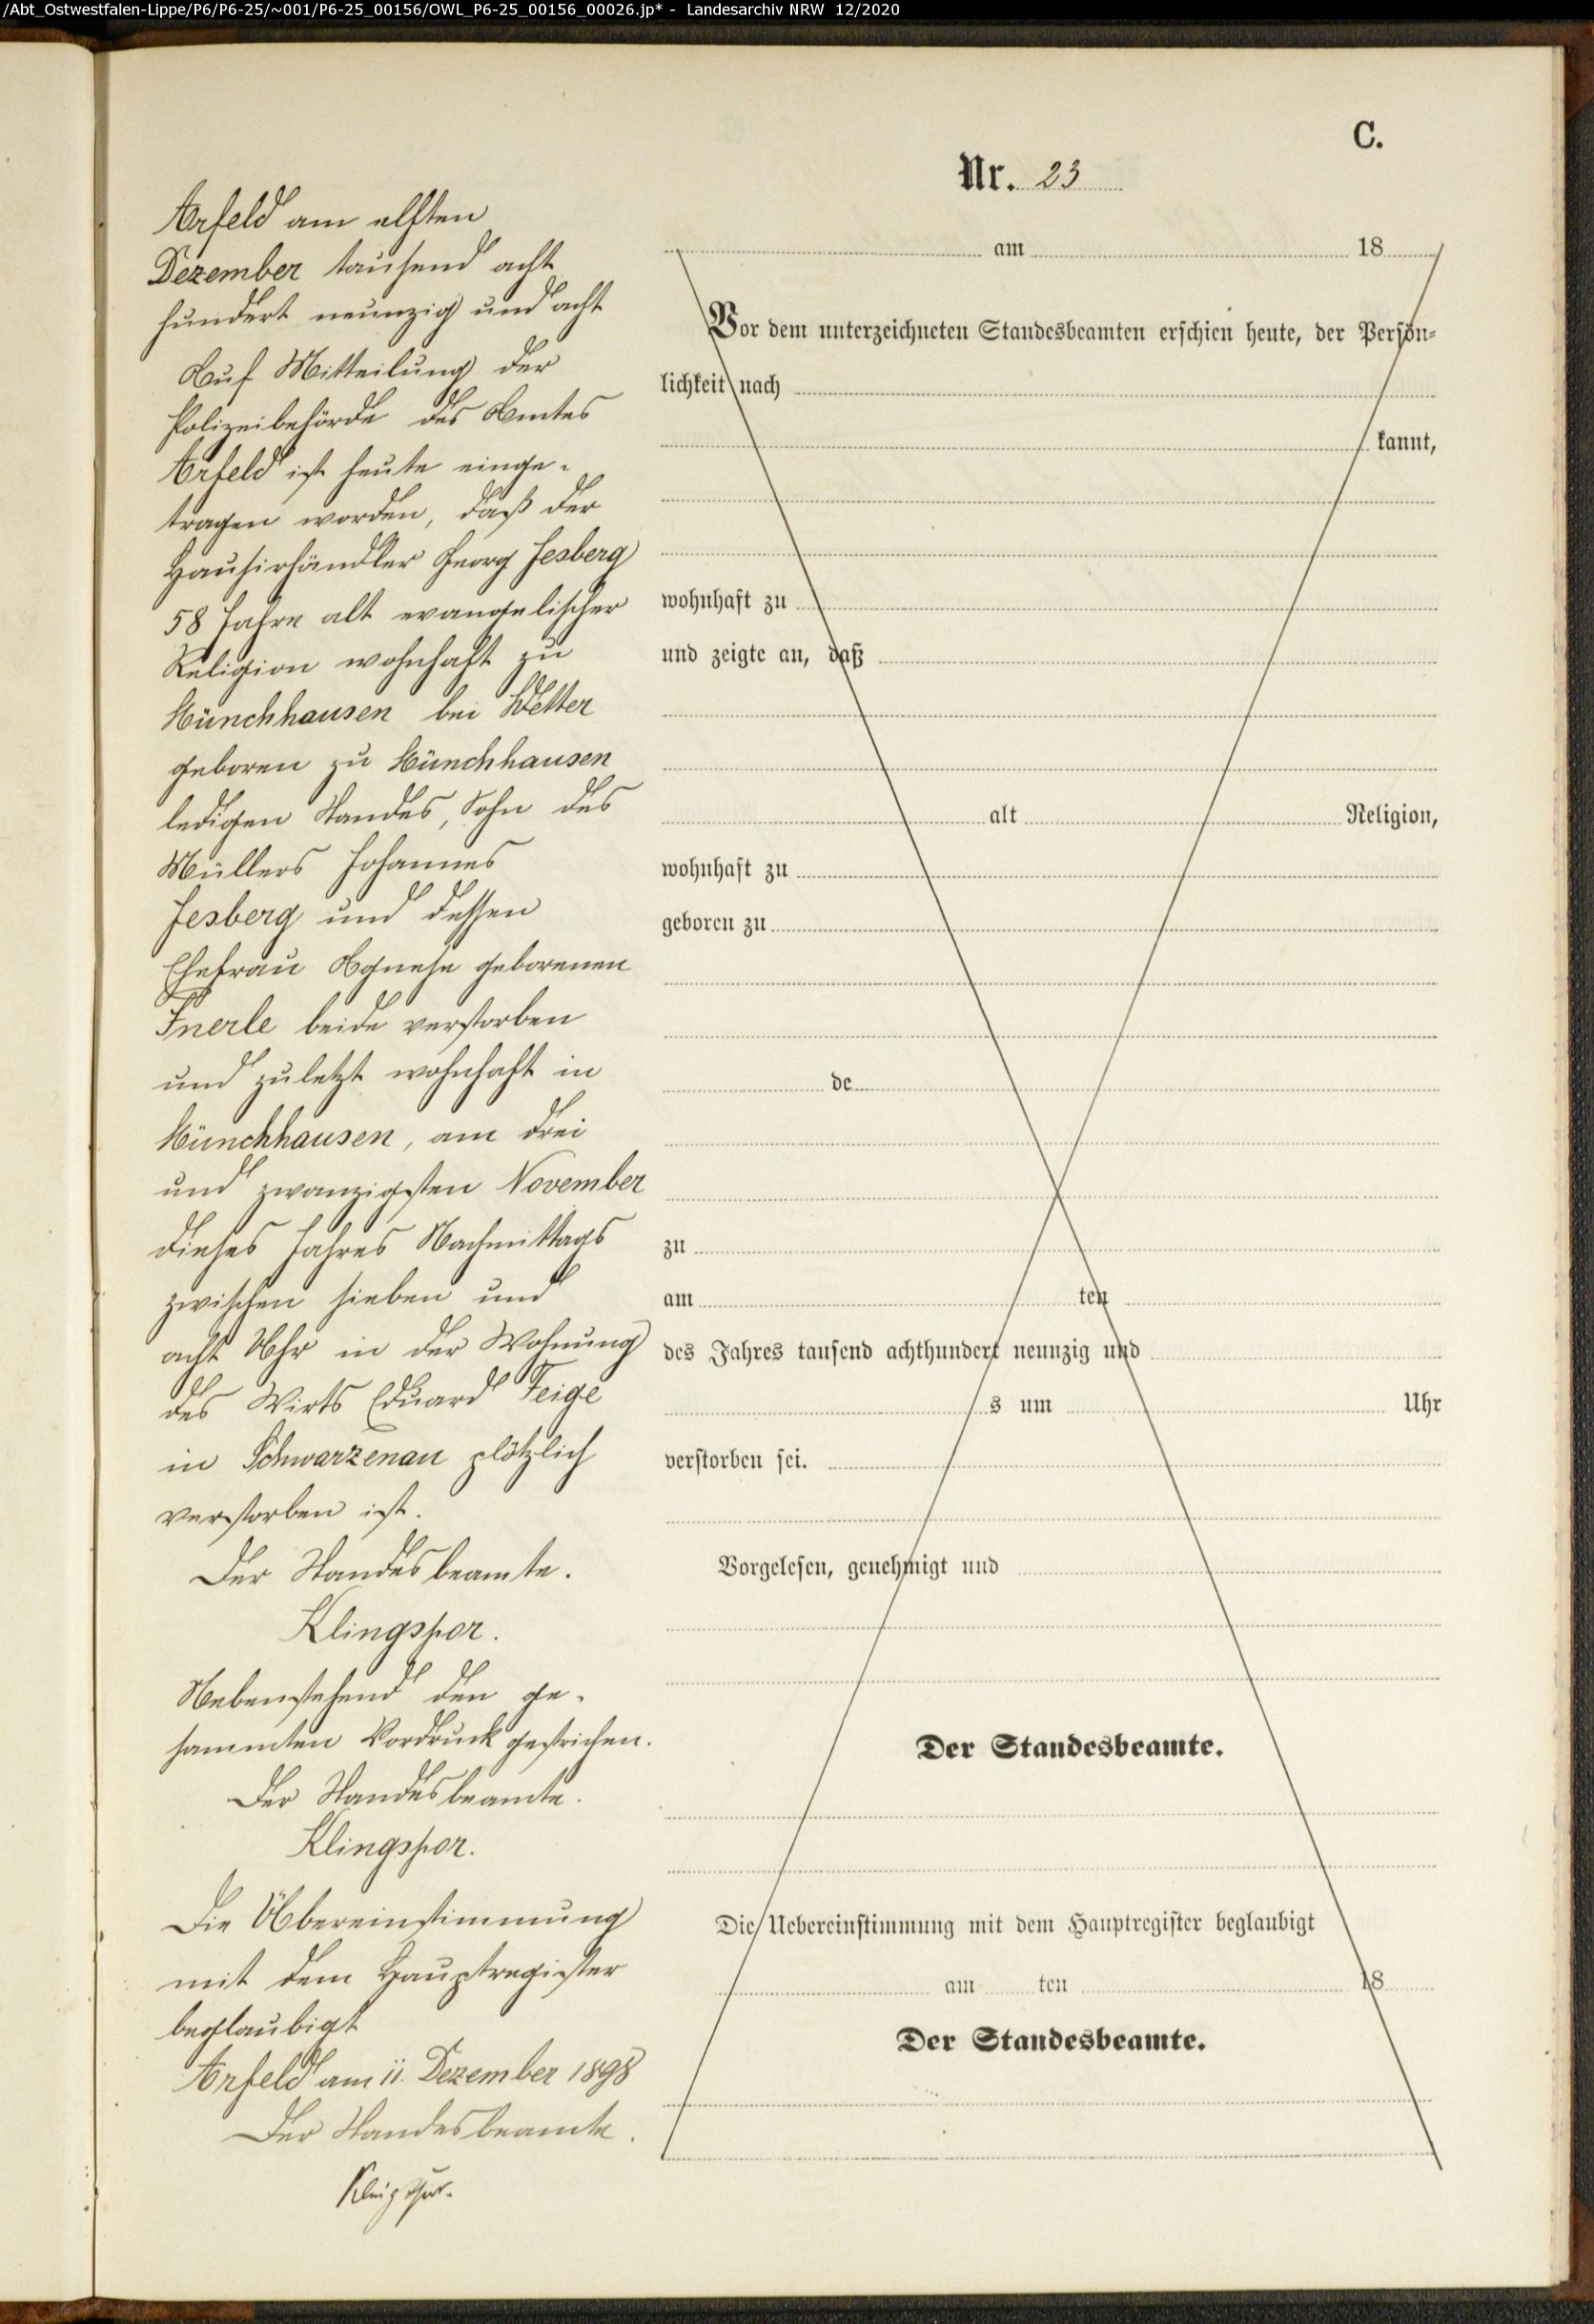 /Abt_Ostwestfalen-Lippe/P6/P6-25/~001/P6-25_00156/OWL_P6-25_00156_00026.jp* - Landesarchiv NRW 12/2020
C.
Nr. 23
Arfeld am elften
Dezember tausend acht
hundert neunzig und acht
Auf Mitteilung der
Polizeibehörde des Amtes
Arfeld ist heute einge-
tragen worden, daß der
Hausirhändler Georg Jesberg
58 Jahre alt evangelischer
Religion wohnhaft zu
Münchhausen bei Wetter
geboren zu Münchhausen
ledigen Standes, Sohn des
Müllers Johannes
Jesberg und dessen
Ehefrau Agnese geborenen
beide verstorben
und zuletzt wohnhaft in
Münchhausen, am drei
und zwanzigsten November
dieses Jahres Nachmittags
zwischen sieben und
acht Uhr in der Wohnung
des Wirts Eduard Feige
in Schwarzenau plötzlich
verstorben ist.
Der Standesbeamte.
Klingspor.
Nebenstehend den ge-
sammten Vordruck gestrichen.
Der Standesbeamte.
Klingspor.
Die Übereinstimmung
mit dem Hauptregister
beglaubigt
Arfeld am 11. Dezember 1898
Der Standesbeamte.
Klingspor.
am 18
Vor dem unterzeichneten Standesbeamten erschien heute, der Persön-
lichkeit nach
kannt,
wohnhaft zu
und zeigte an, daß
alt Religion,
wohnhaft zu
geboren zu
de
zu
am ten
des Jahres tausend achthundert neunzig und
s um Uhr
verstorben sei.
Vorgelesen, genehmigt und
Der Standesbeamte.
Die Uebereinstimmung mit dem Hauptregister beglaubigt
am ten 18
Der Standesbeamte.